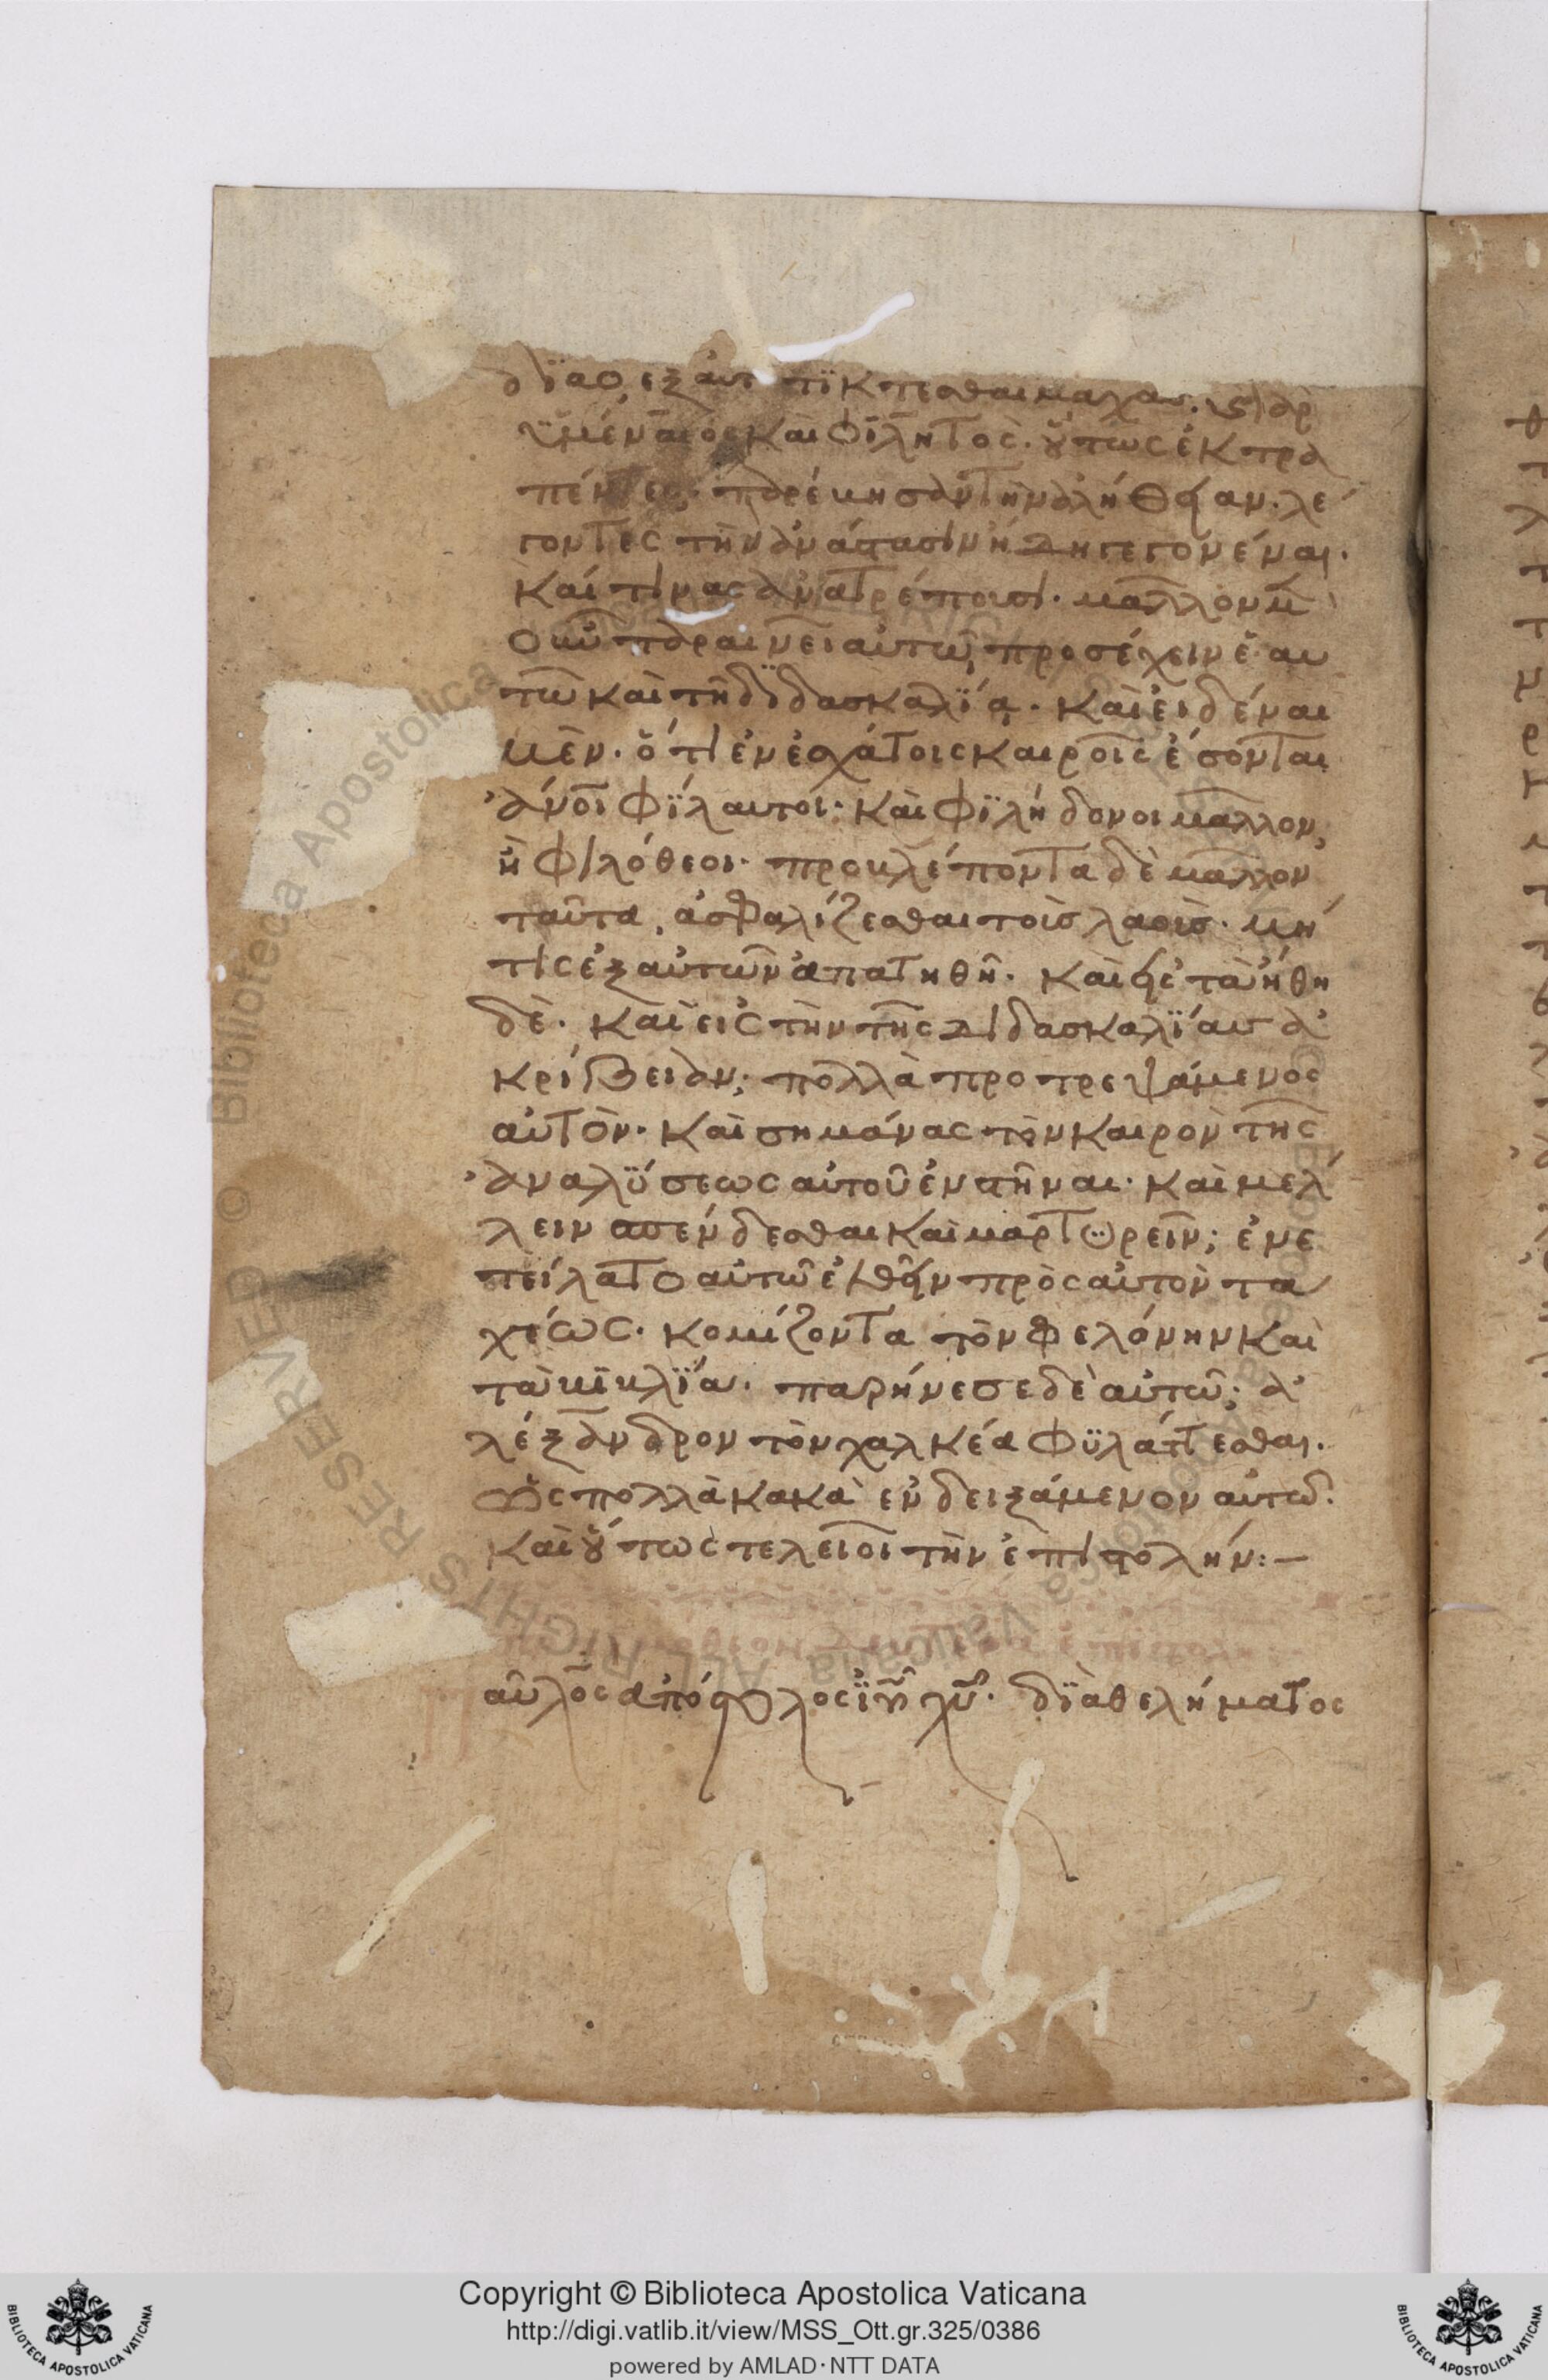 τίκτεσθαι μάχας.
ὑμέναιος καὶ φίλητος. οὕτως ἐκτρα
πέντες, παρέκλησαν τὴν ἀλήθειαν. λέ
γοντες τὴν ἀνάστασιν ἤδη γεγονέναι.
καί τινας ἀνατρέπουσι. μᾶλλον
παραινεῖ αὐτῶ, προσέχειν ἑαυ
τῶ καὶ τῆ διδασκαλΐα. καὶ εἰδέναι
μὲν. ὅτι ἐν ἐσχάτοις καιροῖς ἔσονται
ἄνοι φΐλαυτοι· καὶ φϊλήδονοι μᾶλλον,
ἢ φιλόθεοι. προβλέποντα δὲ μᾶλλον
ταῦτα, ἀσφαλίζεσθαι τοῖς λαοῖς. μή
τις ἐξ αὐτῶν ἀπατηθῆ. καὶ εἰς τὰ ἤθη
δὲ. καὶ εἰς τὴν τῆς διδασκαλΐας ἀ
κρίβειαν; πολλὰ προτρεψάμενος
αὐτὸν. καὶ σημάνας τὸν καιρὸν τῆς
ἀναλΰσεως αὐτοῦ ἐνστῆναι. καὶ μέλ
λειν σπένδεσθαι καὶ μαρτυρεῖν; ἐνε
τείλατο αὐτῶ ἐλθεῖν πρὸς αὐτὸν τα
χέως. κομίζοντα τὸν φελόνην καὶ
τὰ βιβλΐα. παρήνεσε δὲ αὐτῶ; ἀ
λέξανδρον τὸν χαλκέα φϋλάττεσθαι.
ὡς πολλὰ κακὰ ἐνδειξάμενον αὐτῶ.
καὶ οὕτως τελειοῖ τὴν ἐπιστολήν:—
Παῦλος ἀπόστολος ἰῦ χῦ. δϊὰ θελήματος
Copyright © Biblioteca Apostolica Vaticana
http://digi.vatlib.it/view/MSS_Ott.gr.325/0386
powered by AMLAD·NTT DATA
BIBLIOTECA APOSTOLICA VATICANA
BIBLIOTECA APOSTOLICA VATICANA